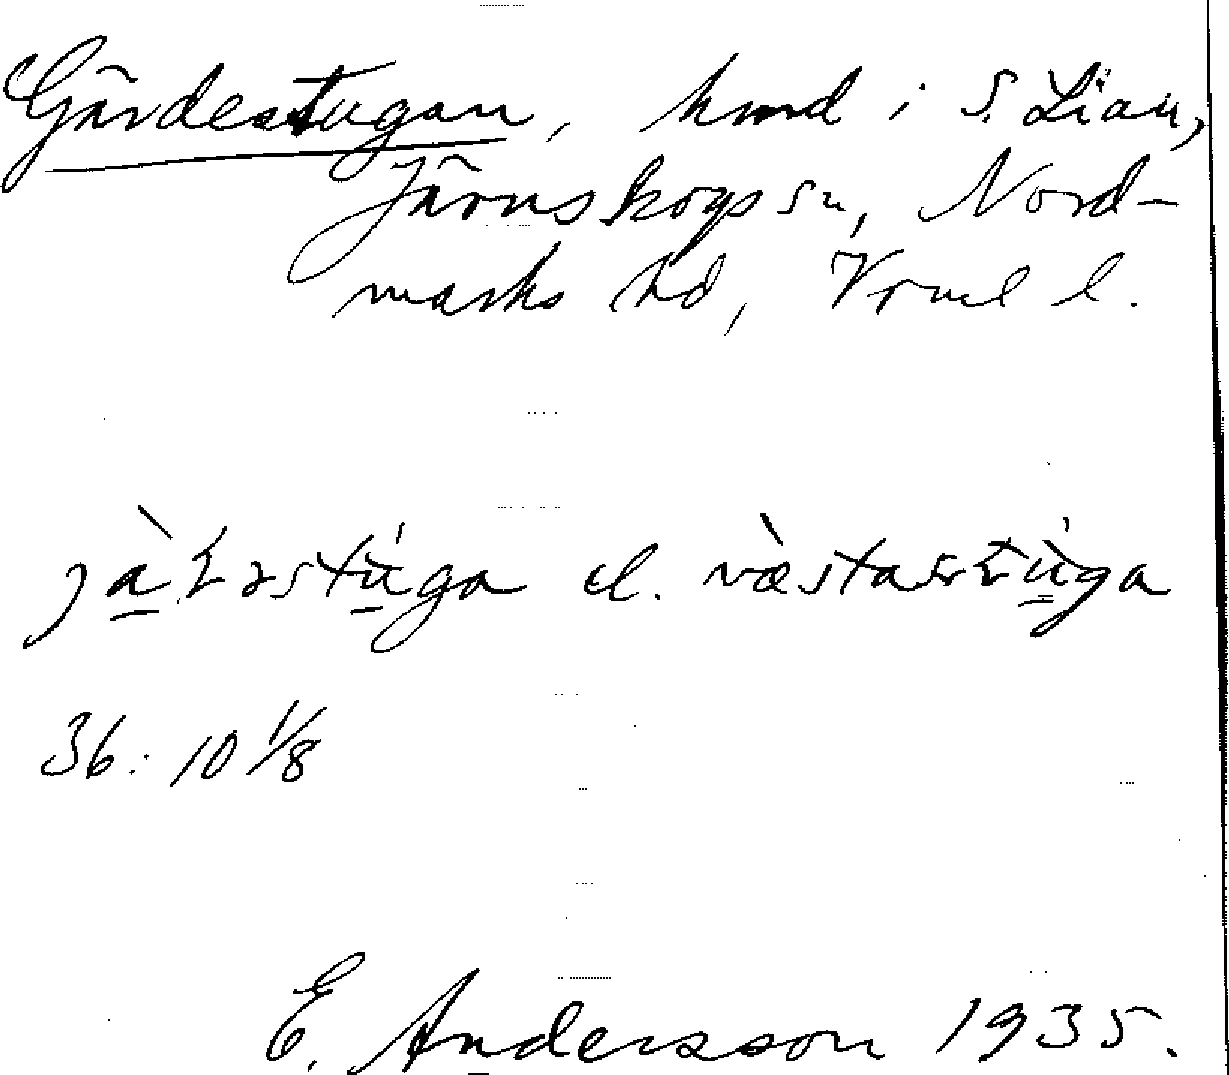 Gärdestugan, hmd i S. Lian,
Järnskogs sn, Nord-
marks hd, Vrml l.
el.
36: 10 1/8
E. Andersson 1935.